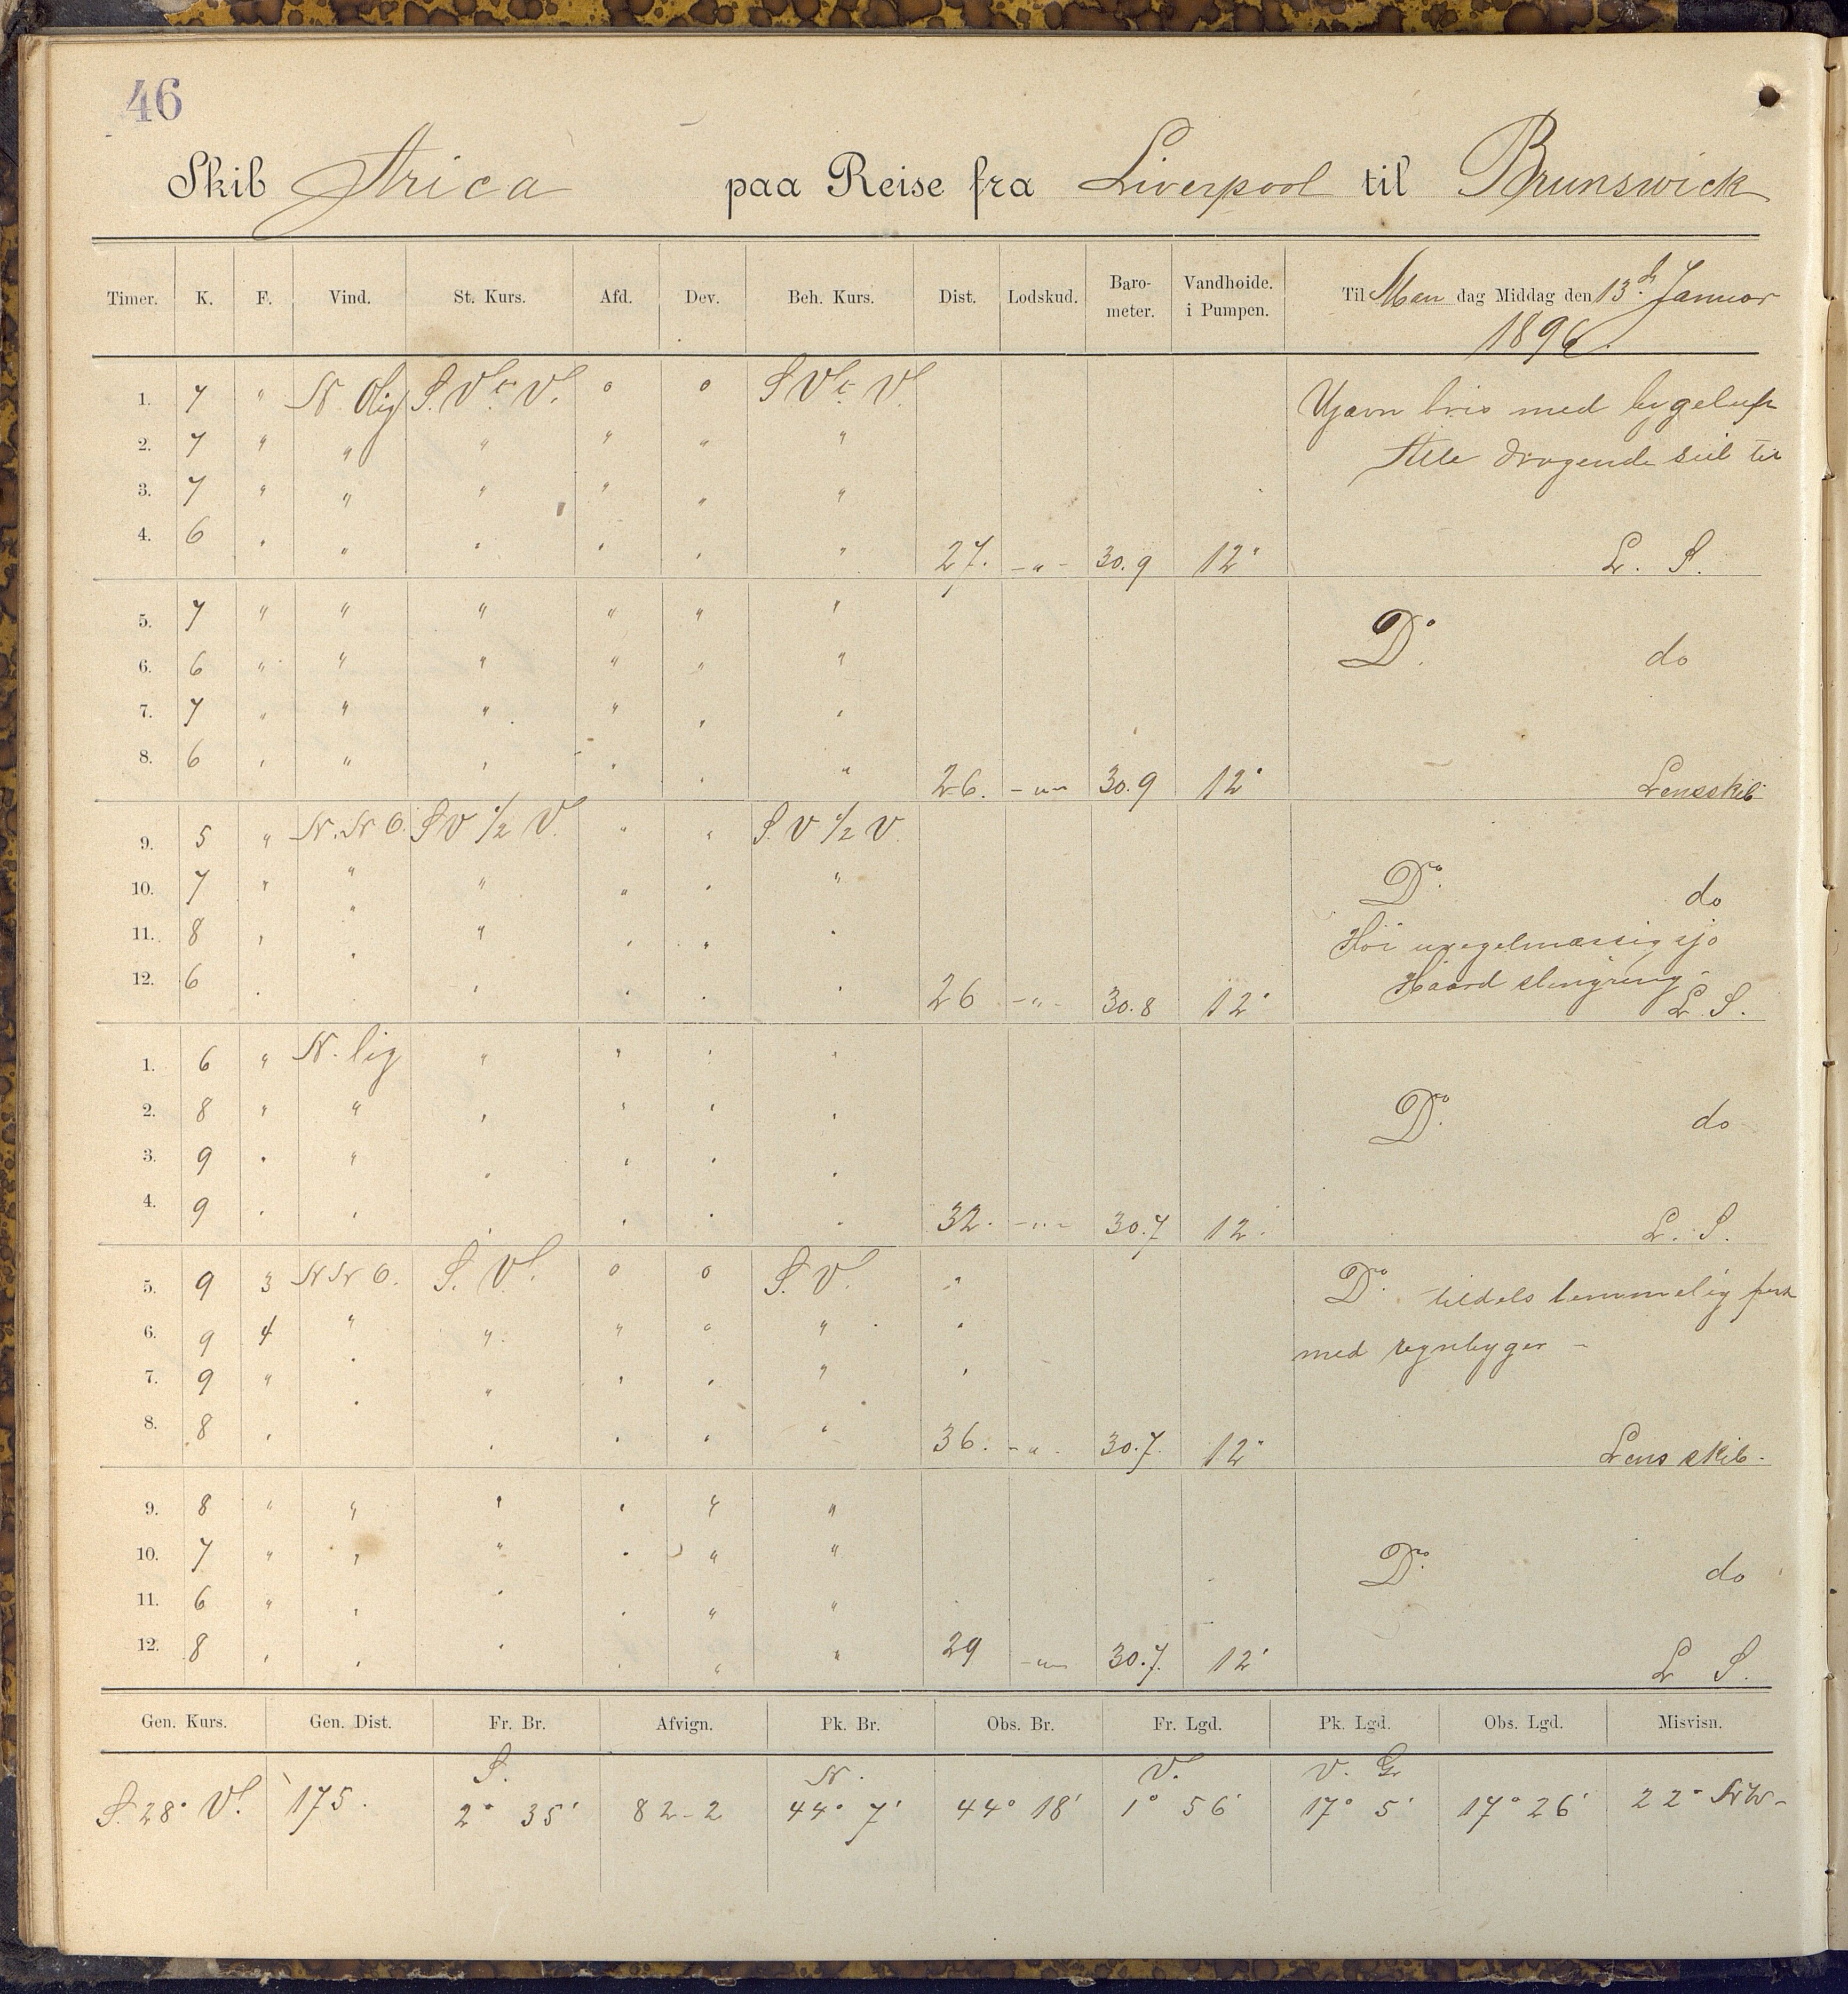 46
Skib Arica paa Reise fra Liverpool til Brunswick
Timer. K. F. Vind. St. Kurs. Afd. Dev. Beh. Kurs. Dist. Lodskud. Baro-meter. Vandhøide. i Pumpen. Til Man dag Middag den 13de Januar
1896.
1. 7 " N. Olig S.V.t.V. o o S.V.t.V. Ujævn bris med bygeluft
2. 7 " " " " " " Alle dragende seil til
3. 7 " " " " " "
4. 6 " " " " " " 27. -"- 30.9 12" L. S.
5. 7 " " " " " " Do do
6. 6 " " " " " "
7. 7 " " " " " "
8. 6 " " " " " " 26. -"- 30.9 12" Lensskib
9. 5 " N.N.O. S V 1/2 V. " " S. V 1/2 V.
10. 7 " " " " " " Do do
11. 8 " " " " " " Høi uregelmæssig sjø
12. 6 " " " " " " 26 -"- 30.8 12" Haard slingring L. S.
1. 6 " N. lig " " " "
2. 8 " " " " " " Do do
3. 9 " " " " " "
4. 9 " " " " " " 32. -"- 30.7 12" L. S.
5. 9 3 N N O. S. V. o o S. V. " Do tildels temmelig
6. 9 4 " " " " " " med regnbyger -
7. 9 " " " " " " "
8. 8 " " " " " " 36. -"- 30.7. 12" Lens skib.
9. 8 " " " " " "
10. 7 " " " " " " Do do
11. 6 " " " " " "
12. 8 " " " " " " 29 -"- 30.7. 12" L S.
Gen. Kurs. Gen. Dist. Fr. Br. Afvign. Pk. Br. Obs. Br. Fr. Lgd. Pk. Lgd. Obs. Lgd. Misvisn.
S. N. V. V. G
S. 28° V. 175. 2° 35' 82-2 44° 7' 44° 18' 1° 56' 17° 5' 17° 26' 22° NW-